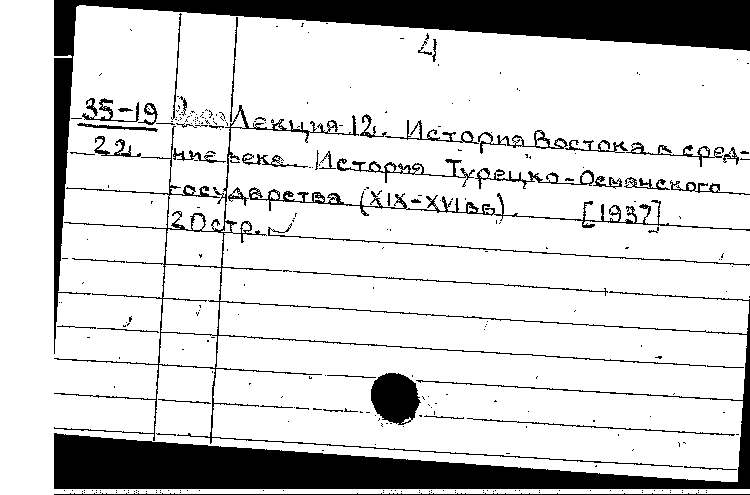 4
35-19 Лекция 12. История Востока в сред-
22. ние века. История Турецко-Османского
государства (XIX-XVI вв). [1937].
20 стр.